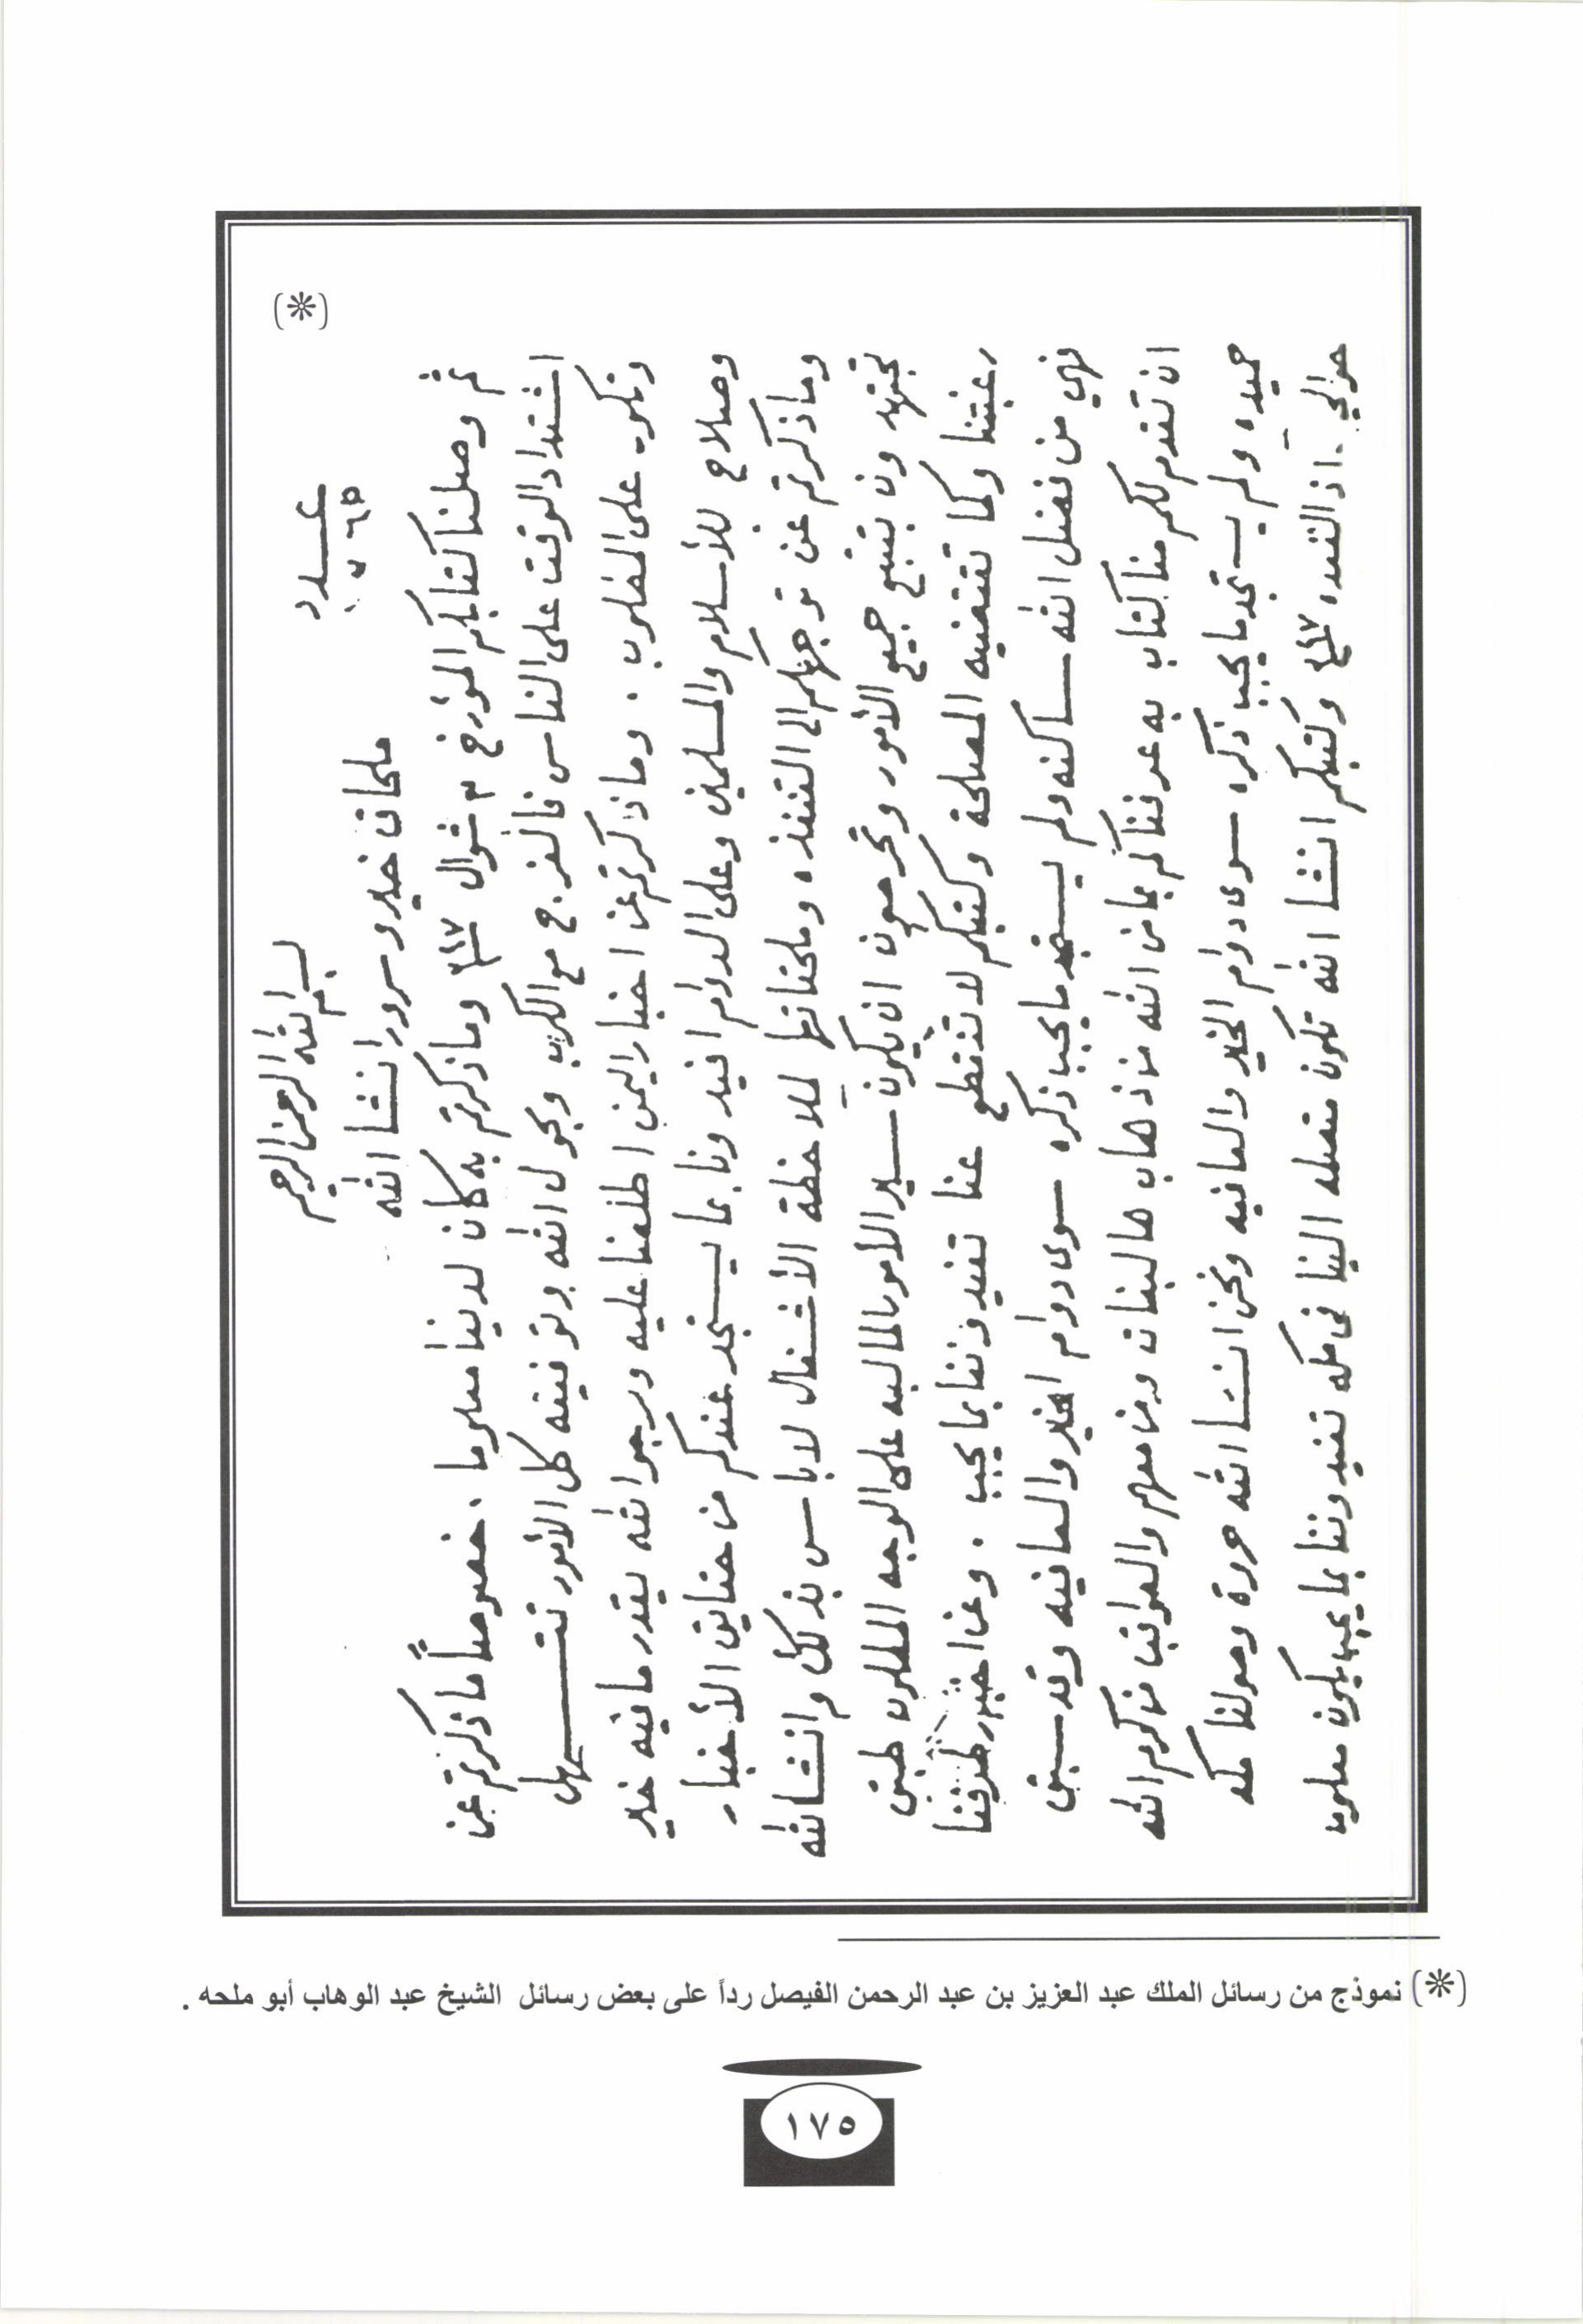 (*)
بسم الله الرحمن الرحيم
عدد
ملحاق خير وسرور انشا الله
ثم وصلنا كتابكم المؤرخ ٣ شوال وما ذكرتم به كان لدينا معلوما . خصوصاً ما ذكرتم عن
اشتداد الوقت على الناس فالفرج مع الكرب وبحول الله وتوفيقه كل الأمور تتسهل
على المطلوب . وما ذكرتم عن اخبار اليمن اطلعنا عليه ونرجوا الله يقدر ما فيه خير
وصلاح للأسلام والمسلمين وعلى الدوام افيدونا بما يستجد عندكم من حقايق الأخبار
وما ذكرتم عن توجهكم الى القنفذه وملحقاتها لملاحظة الأشغال لا باس بذلك وانشالله
تجتهدون بتتبع جميع الأمور وتحرصون ان يكون سير الأمور الماليه على الوجه المطلوب طبق
رغبتنا وكما تقتضيه المصلحة وكتبكم لا تنقطع عنا تفيدوننا بما يجب . وعن اخبار طرفنا
فهي من فضل الله ساكنه ولم يستجد ما يجب ذكره سوى دوام الخير والعافيه وقد سبق
ان تقدم لكم منا كتاب به عرفناكم بما من الله من ذهاب هالبنات ومن معهم والعواقب من كرم الله
حميده ولم يستجد ما يجب ذكره سوى دوام الخير والعافيه ونحن انشا الله حروة وصولنا مكه
حوالي ١٠ ذا القعده وكتبكم انشا الله تكون متصله الينا في مكه تفيدوننا بما يجب يكون معلوم
(*) نموذج من رسائل الملك عبد العزيز بن عبد الرحمن الفيصل رداً على بعض رسائل الشيخ عبد الوهاب أبو ملحه .
١٧٥